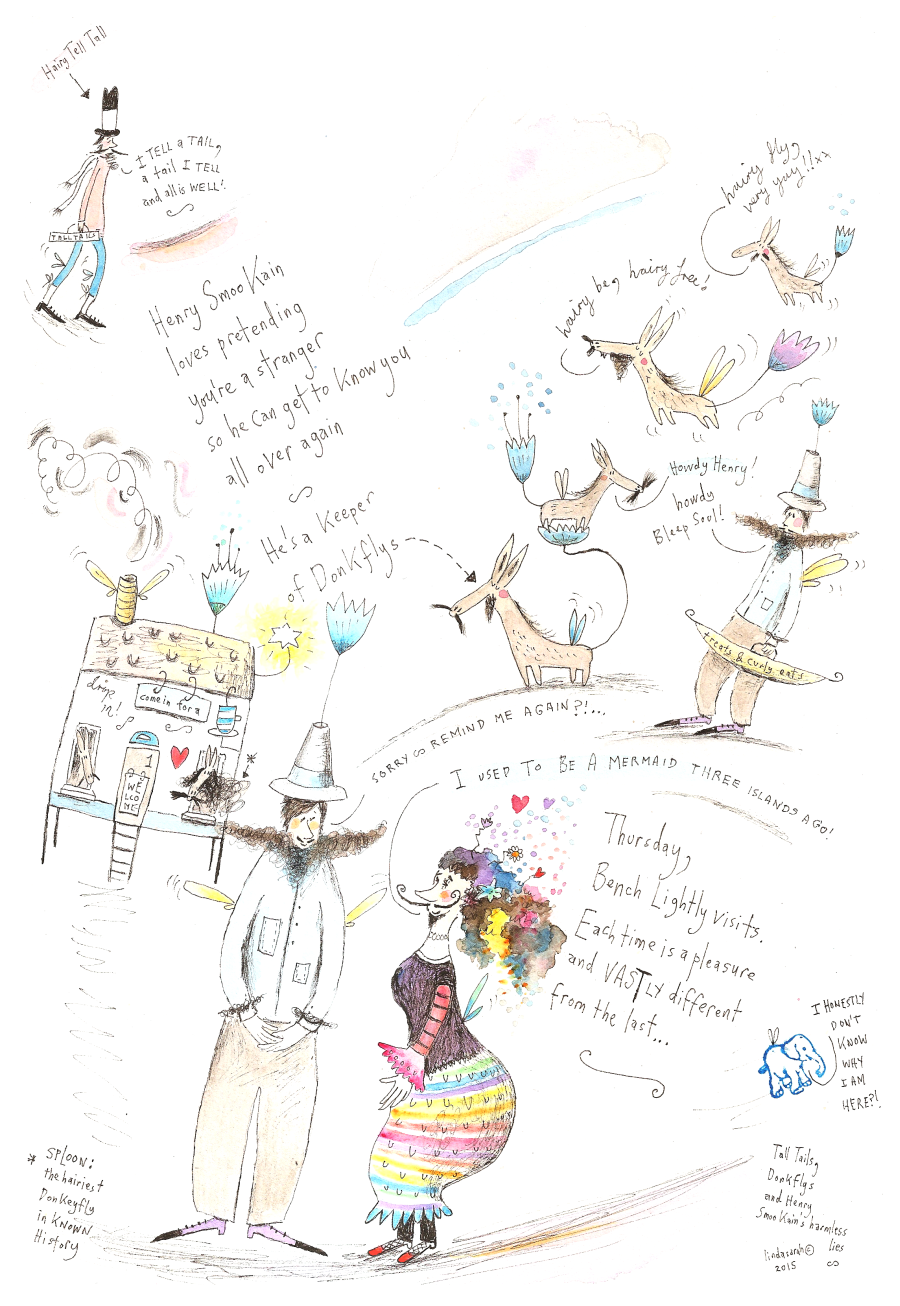 Hairy Tell Tall
I TELL a TAIL,
a tail I TELL
and all is WELL!
TALL TAILS
hairy fly,
very yay!!xx
hairy beg hairy free!
Henry Smoo Kain
loves pretending
you're a stranger
so he can get to know you
all over again
He's a Keeper
of Donkflys
Howdy Henry!
howdy
Bleep Soul!
treats & curly eats
drop
in!
come in for a
1
WE
LCO
ME
*
SORRY ∞ REMIND ME AGAIN?!...
I USED TO BE A MERMAID THREE ISLANDS AGO!
Thursday,
Bench Lightly visits.
Each time is a pleasure
and VASTLY different
from the last...
I HONESTLY
DON'T
KNOW
WHY
I AM
HERE?!
* SPLOON:
the hairiest
Donkeyfly
in KNOWN
History
Tall Tails,
Donkflys
and Henry
Smoo Kain's harmless
lies
lindasarah©
2015